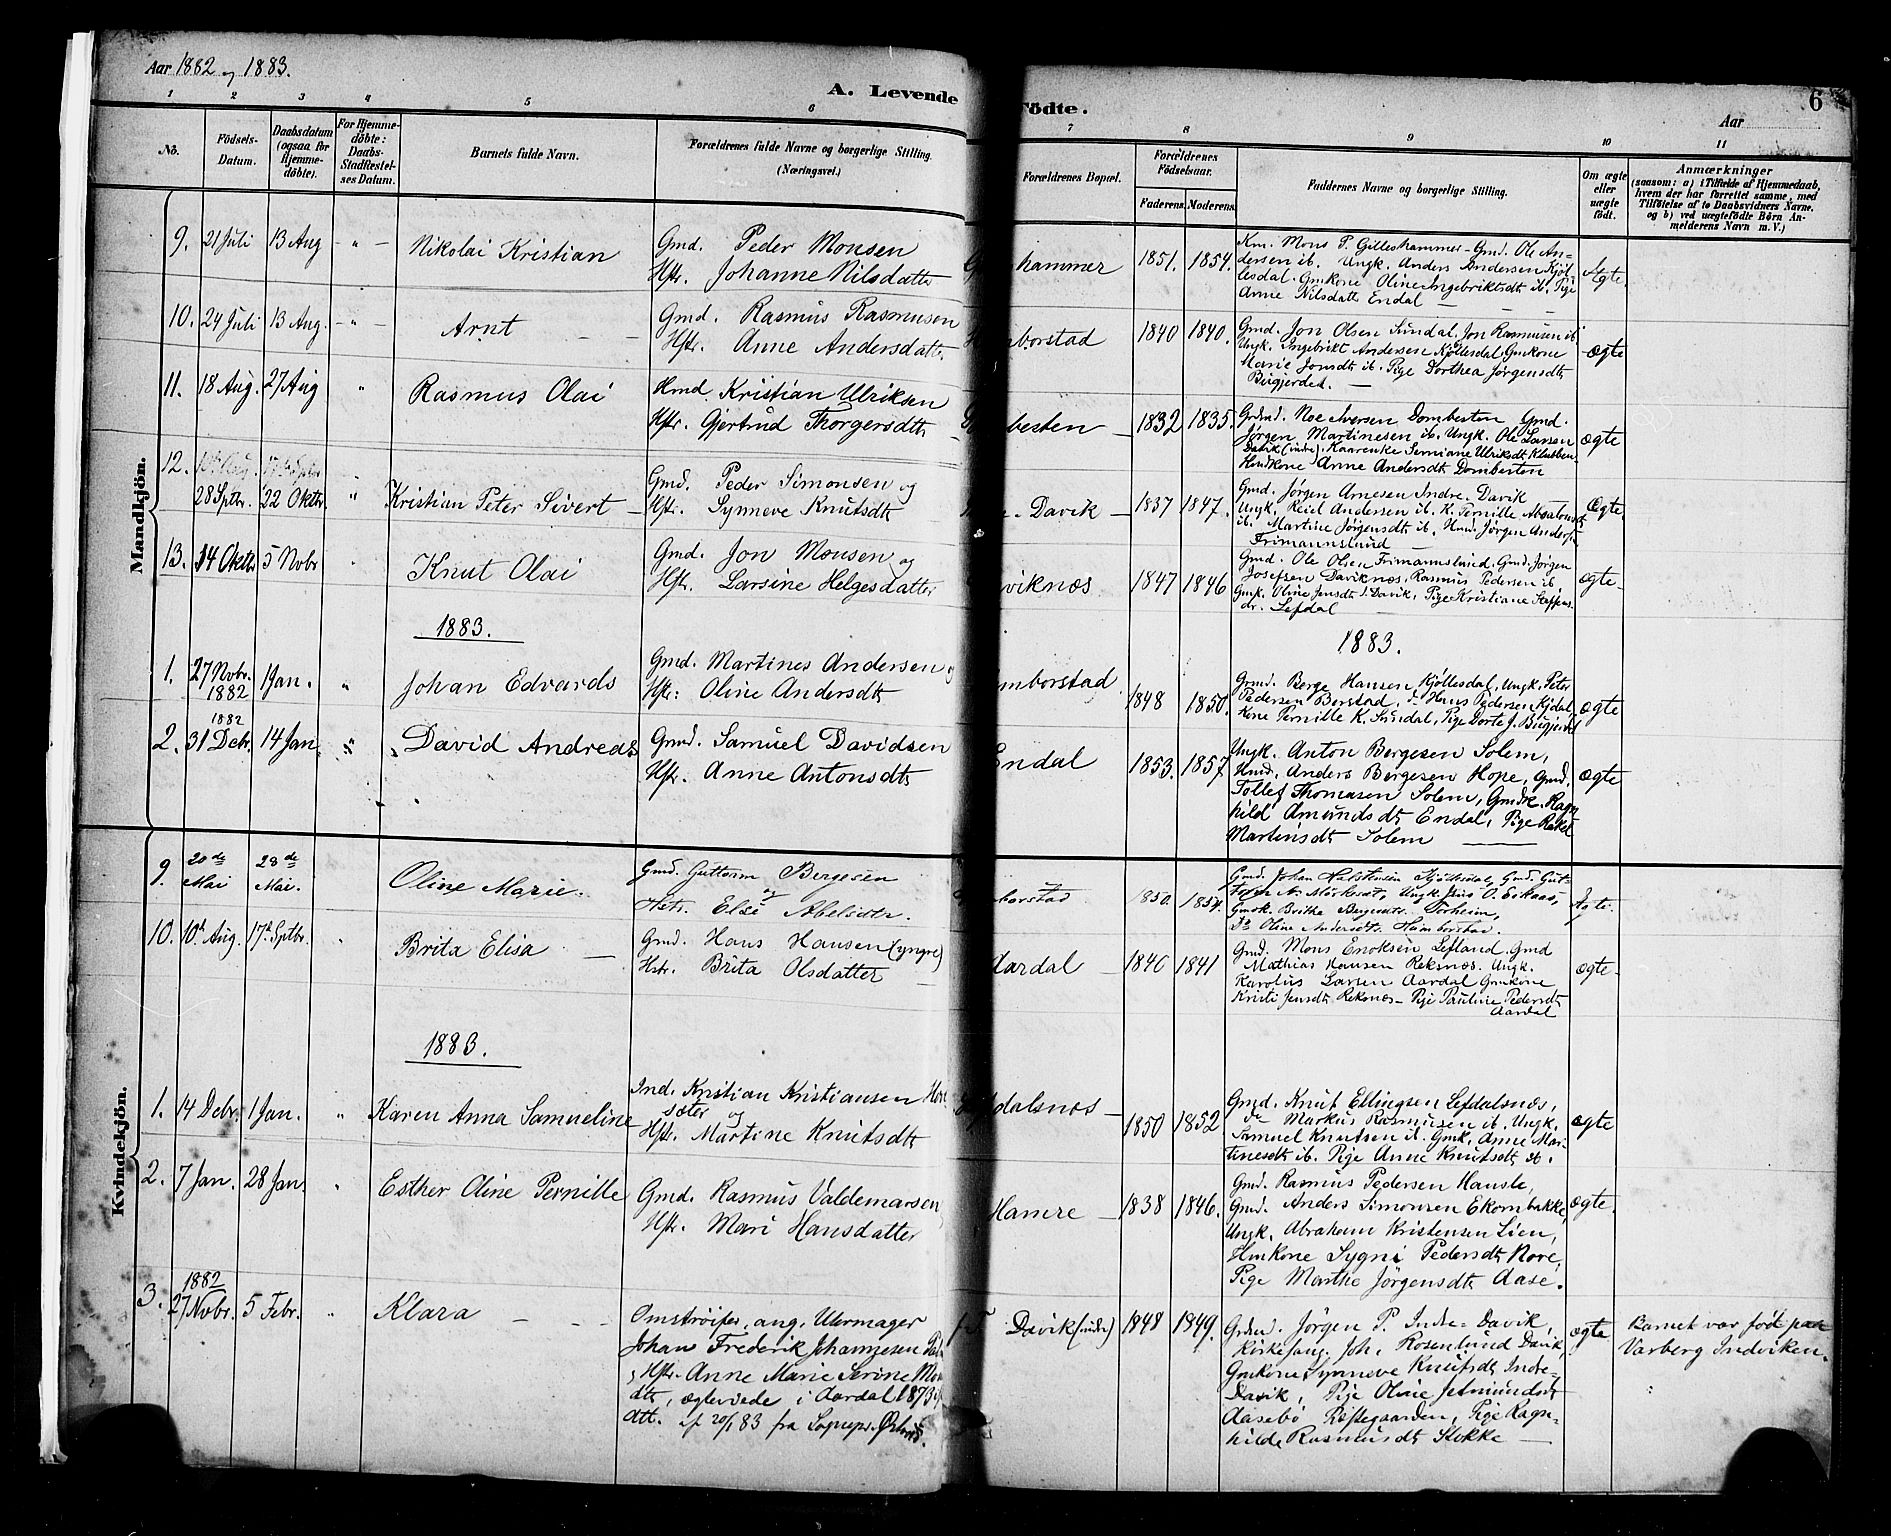 Aar 1882 og 1883.
A. Levende Födte.
6
Aar
1 2 3 4 5 6 7 8 9 10 11
No.
Födsels-Datum.
Daabsdatum (ogsaa for Hjemme-döbte).
For Hjemme-döbte: Daabs-Stadfæstel-ses Datum.
Barnets fulde Navn.
Forældrenes fulde Navne og borgerlige Stilling. (Næringsvei.)
Forældrenes Bopæl.
Forældrenes Födselsaar.
Faderens. Moderens.
Faddernes Navne og borgerlige Stilling.
Om ægte eller uægte födt.
Anmærkninger
(saasom: a) i Tilfælde af Hjemmedaab,
hvem der har forrettet samme, med
Tilföielse af to Daabsvidners Navne.
og b) ved uægtefödte Börn An-
melderens Navn m. V.)
Mandkjön.
9. 21 Juli 13 Aug - " - Nikolai Kristian
Gmd. Peder Monsen
Hstr. Johanne Nilsdatter
hammer 1851. 1854.
Km. Mons P. Gilleshammer - Gmd. Ole An-
dersen ib. Ungk. Anders Andersen Kjöl-
lesdal. Gmkone Oline Ingebriktsdt ib. Pige
Anne Nilsdatt Endal
Ægte.
10. 24 Juli 13 Aug. - " - Arnt
Gmd. Rasmus Rasmusen
Hstr. Anne Andersdatt
mborstad 1840 1840.
Gmd. Jon Olsen Sundal, Jon Rasmusen ib
Ungk. Ingebrikt Andersen Kjöllesdal, Gmkone
Marie Jonsdt ib. Pige Dorthea Jörgensdt
Bugjerdet.
ægte
11. 18 Aug. 27 Aug " Rasmus Olai
Hmd Kristian Ulriksen
Hstr. Gjertrud Thorgersdtt
besten 1832 1835.
Grdmd. Noe Iversen Dombesten Gmd.
Jörgen Martinesen ib. Ungk. Ole Larsen
Davik (indre). Ulriksdt Klubben
Hmdkone Anne Andersdt Dombesten
ægte
12. 28 Sptbr. 22 Oktbr " Kristian Peter Sivert
Gmd. Peder Simonsen og
Hstr. Synneve Knutsdtr
Davik 1837 1847.
Gmd. Jörgen Arnesen Indre-Davik
Ungk. Reiel Andersen ib. K. Pernille Absalonsdt
ib. Martine Jörgensdt ib. Hmd. Jörgen Andersen
Frimannslund
Ægte.
13. 14 Oktbr 5 Novbr " Knut Olai
Gmd. Jon Monsen og
Hstr. Larsine Helgesdatter
viknæs 1847 1846
Gmd. Ole Olsen Frimannslund. Gmd. Jörgen
Josefsen Daviknæs, Rasmus Pedersen ib
Gmk. Oline Jensdt I. Davik, Pige Kristiane Steffens-
dr. Lefdal
ægte
1883.
1883.
1. 27 Nvbr. 1882 1 Jan. " Johan Edvards
Gmd. Martines Andersen og
Hstr: Oline Andersdtr
mborstad 1848 1850.
Grmd. Berge Hansen Kjöllesdal, Ungk. Peter
Pedersen Berstad, do Hans Pedersen Kjdal,
Kone Pernille K. Sundal, Pige Dorte J. Bugjerdet
ægte
2. 1882 31 Debr. 14 Jan. " David Andreas
Gmd. Samuel Davidsen
Hstr. Anne Antonsdtr
Endal 1853. 1857.
Ungk. Anton Bergesen Solem,
Hmd. Anders Bergesen Hope, Gmd.
Tollef Thomasen Solem, Gmdk. Ragn-
hild Amundsdt Endal, Pige Rakel
Martinsdt Solem
ægte
Kvindekjön.
9. 20de Mai 28de Mai. Oline Marie.
Gmd. Guttorm Bergesen
og
Hstr. Else Abelsdtr.
borstad 1850. 1854.
Gmd. Johan Kjöllesdal, Gmd. Gut-
torm A. Ungk. O. Eskaas,
Gmdk. Britha Bergesdtr. Torheim,
Do Oline Andersdtr. Hamborstad.
Ægte.
10. 10h Aug. 17h Sptbr. " Brita Elisa
Gmd. Hans Hansen (yngre)
Hstr. Brita Olsdatter
Aardal 1840 1841
Gmd. Mons Enoksen Lefland. Gmd
Mathias Hansen Reksnæs. Ungk.
Karolus Larsen Aardal Gmkone
Kristi Jensdt Reksnæs - Pige Pauline Pedersdt
Aardal
ægte.
1883.
1. 14 Debr. 1 Jan. " Karen Anna Samueline
Ind. Kristian Kristiansen
sæter og
Hstr. Martine Knutsdtr
dalsnæs 1850 1852
Gmd. Knut Ellingsen Lefdalsnæs,
do Markus Rasmusen ib. Ungk.
Samuel Knutsen ib. Gmk. Anne Mar-
tinesdt ib. Pige Anne Knutsdt ib.
ægte
2. 7 Jan. 28 Jan. " Esther Oline Pernille
Gmd. Rasmus Valdemarsen
Hstr. Mari Hansdatter
Hamre 1838 1846.
Gmd. Rasmus Pedersen Haus
Gmd. Anders Simonsen Ekornbakke,
Ungk. Abraham Kristensen Lien,
Hmkone Sygni Pedersdt Nore,
Pige Marthe Jörgensdt Aase.
ægte.
3. 1882 27 Nvbr. 5 Febr. " Klara
Omstreifer, ang. Uhrmager
Johan Frederik Johannesen
Hstr. Anne Marie Serine
dtr, ægteviede i Aardal 1873
Att. 20/1 83 fra Sognepr.
Davik (indre) 1848 1849.
Grdmd. Jörgen P. Indre-Davik,
Kirkesang. Joh. Rosenlund Davik,
Gmkone Synneve Knutsdt Indre-
Davik, Pige Oline Jetmundsdt
Aasebö Pige Ragn-
hilde Rasmusdt Stokke
ægte
Barnet var född paa
Varberg Indviken.